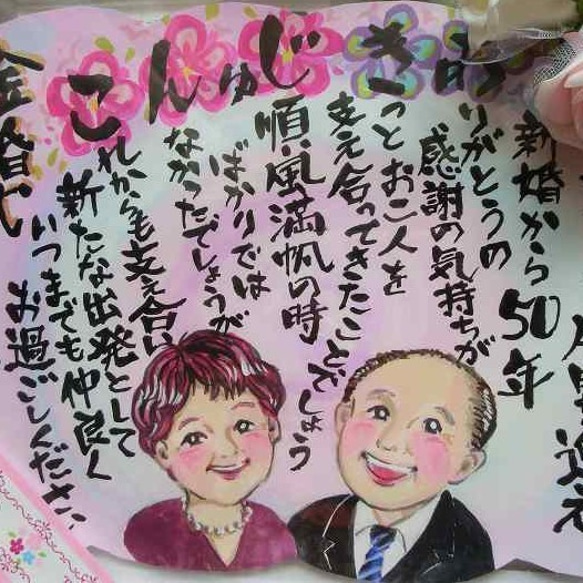 こんゅじ き
新婚から50年
りがとうの
感謝の気持ちが
っとお二人を
支え合ってきたことでしょう
順風満帆の時
ばかりでは
なかったでしょうが
れからも支え合い
新たな出発として
いつまでも仲良く
お過ごしください
金婚式